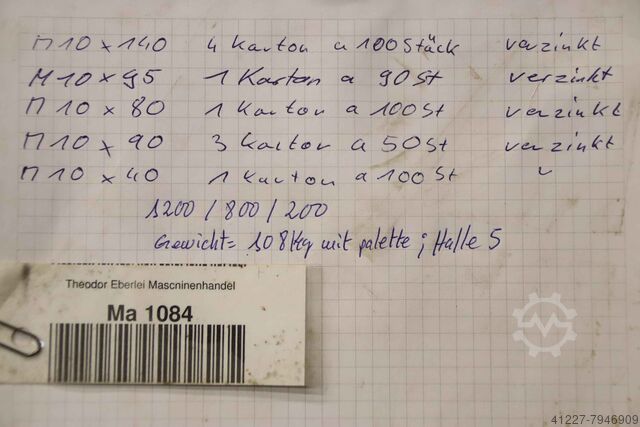 M10 x 140 4 Karton a 100 Stück verzinkt
M10 x 95 1 Karton a 90 St verzinkt
M10 x 80 1 Karton a 100 St verzinkt
M10 x 90 3 Karton a 50 St verzinkt
M10 x 40 1 Karton a 100 St
1200 / 800 / 200
Gewicht = 108 Kg mit palette ; Halle 5
Theodor Eberlei Mascninenhandel
Ma 1084
41227-7946909